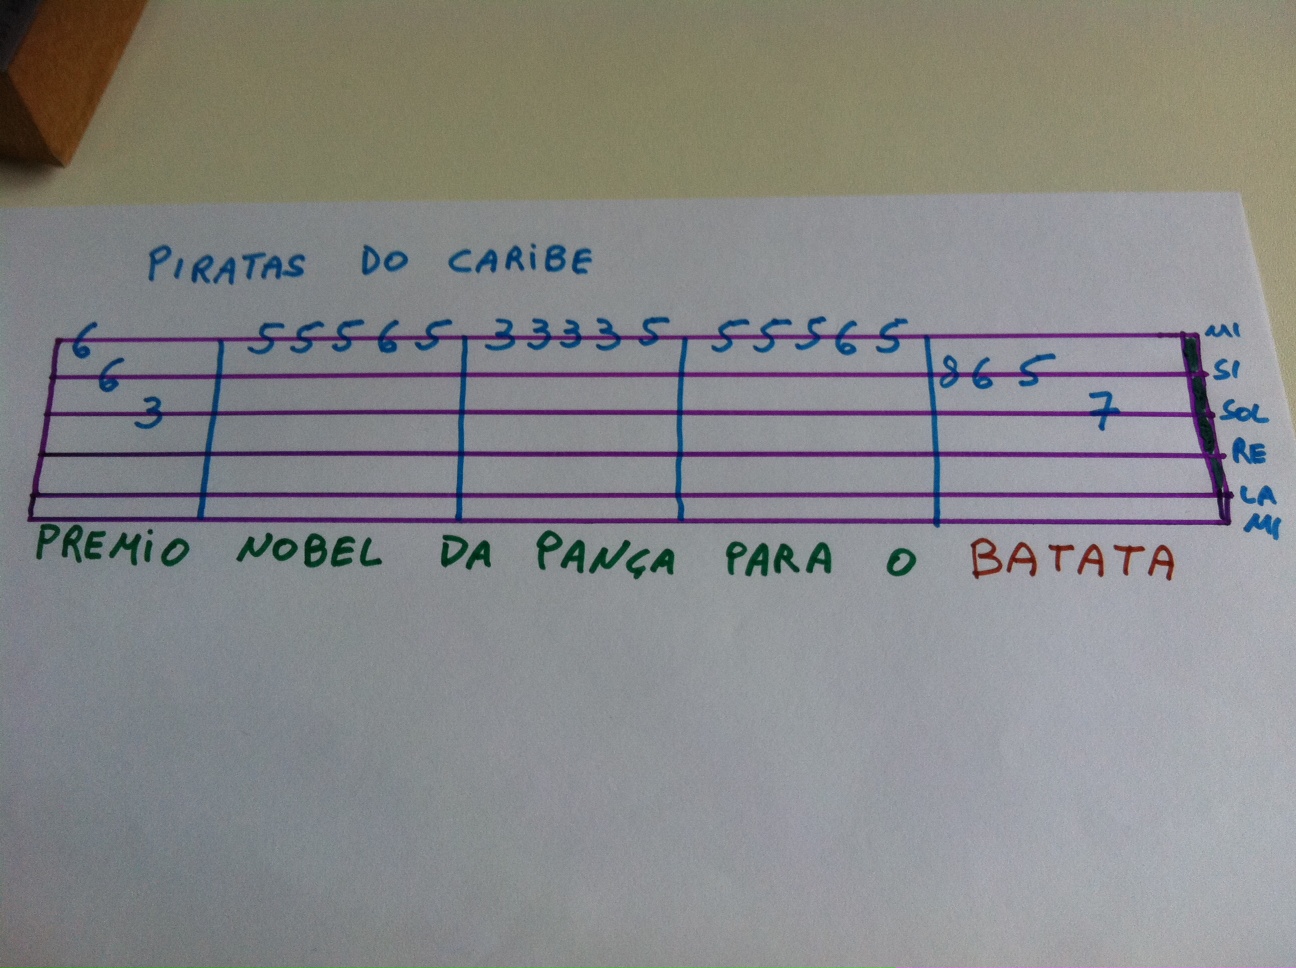 PIRATAS DO CARIBE
6 55565 33335 55565 MI
6 865 SI
3 7 SOL
RE
LA
MI
PREMIO NOBEL DA PANÇA PARA O BATATA